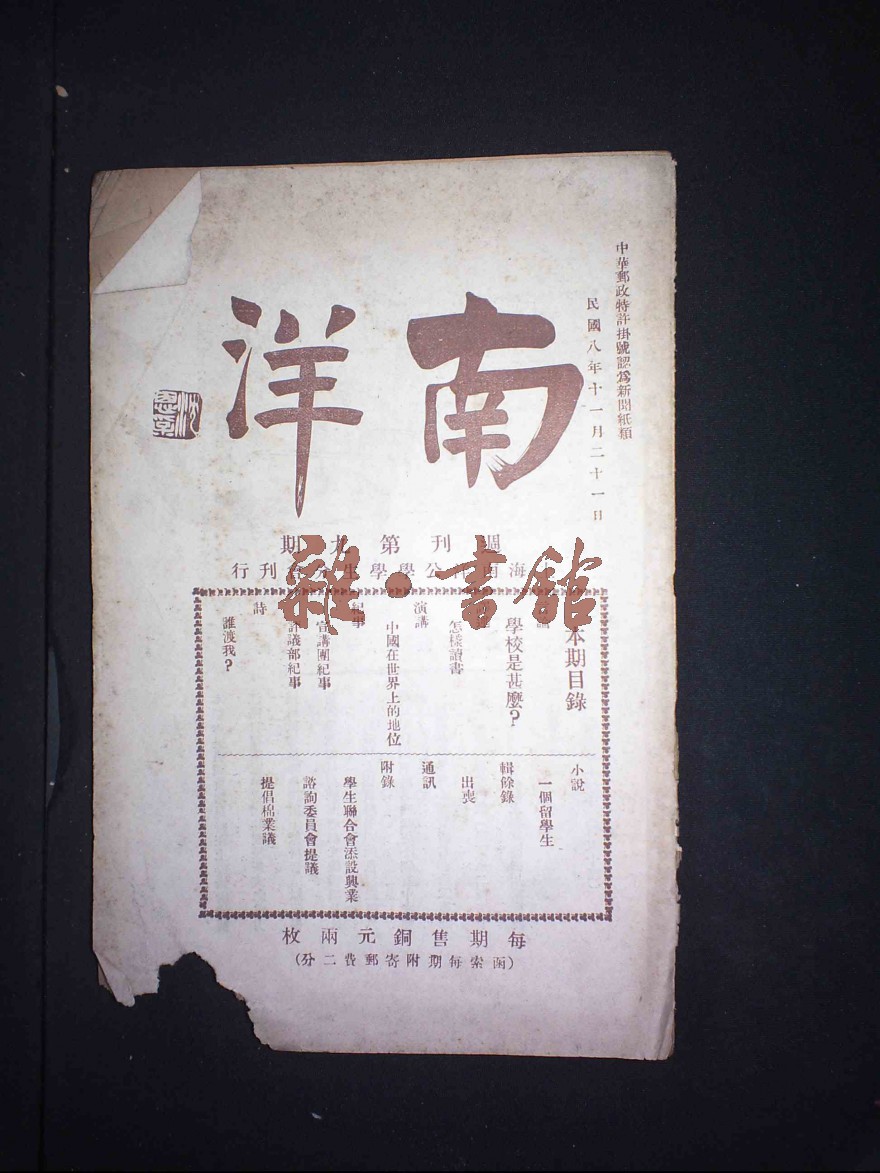 中華郵政特許掛號認爲新聞紙類
民國八年十一月二十一日
南洋
週刊第九期
海南公學學生分會刊行
雜·書館
本期目錄
學校是甚麼?
怎樣讀書
演講
中國在世界上的地位
紀事
宣講團紀事
評議部紀事
詩
誰渡我?
小說
一個留學生
輯餘錄
出喪
通訊
附錄
學生聯合會添設興業
諮詢委員會提議
提倡棉業議
每期售銅元兩枚
(函索每期附寄郵費二分)